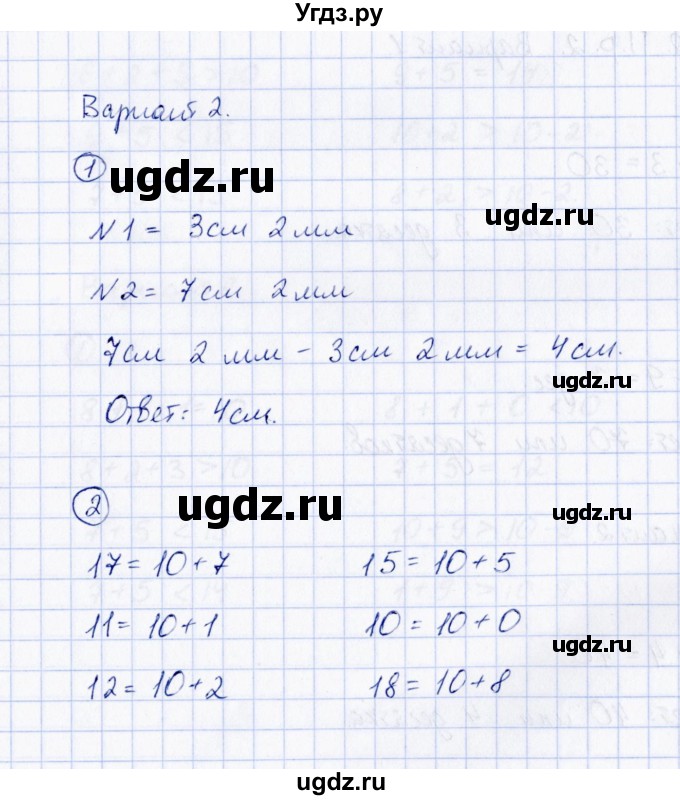 Угдз.ру
Вариант 2.
1
ugdz.ru
ugdz.ru
N1 = 3см 2мм
N2 = 7см 2мм
7см 2мм - 3см 2мм = 4см.
ugdz.ru
Ответ: 4см.
2
ugdz.ru
ugdz.ru
17 = 10 + 7 15 = 10 + 5
11 = 10 + 1 10 = 10 + 0
ugdz.ru
12 = 10 + 2 18 = 10 + 8
ugdz.ru